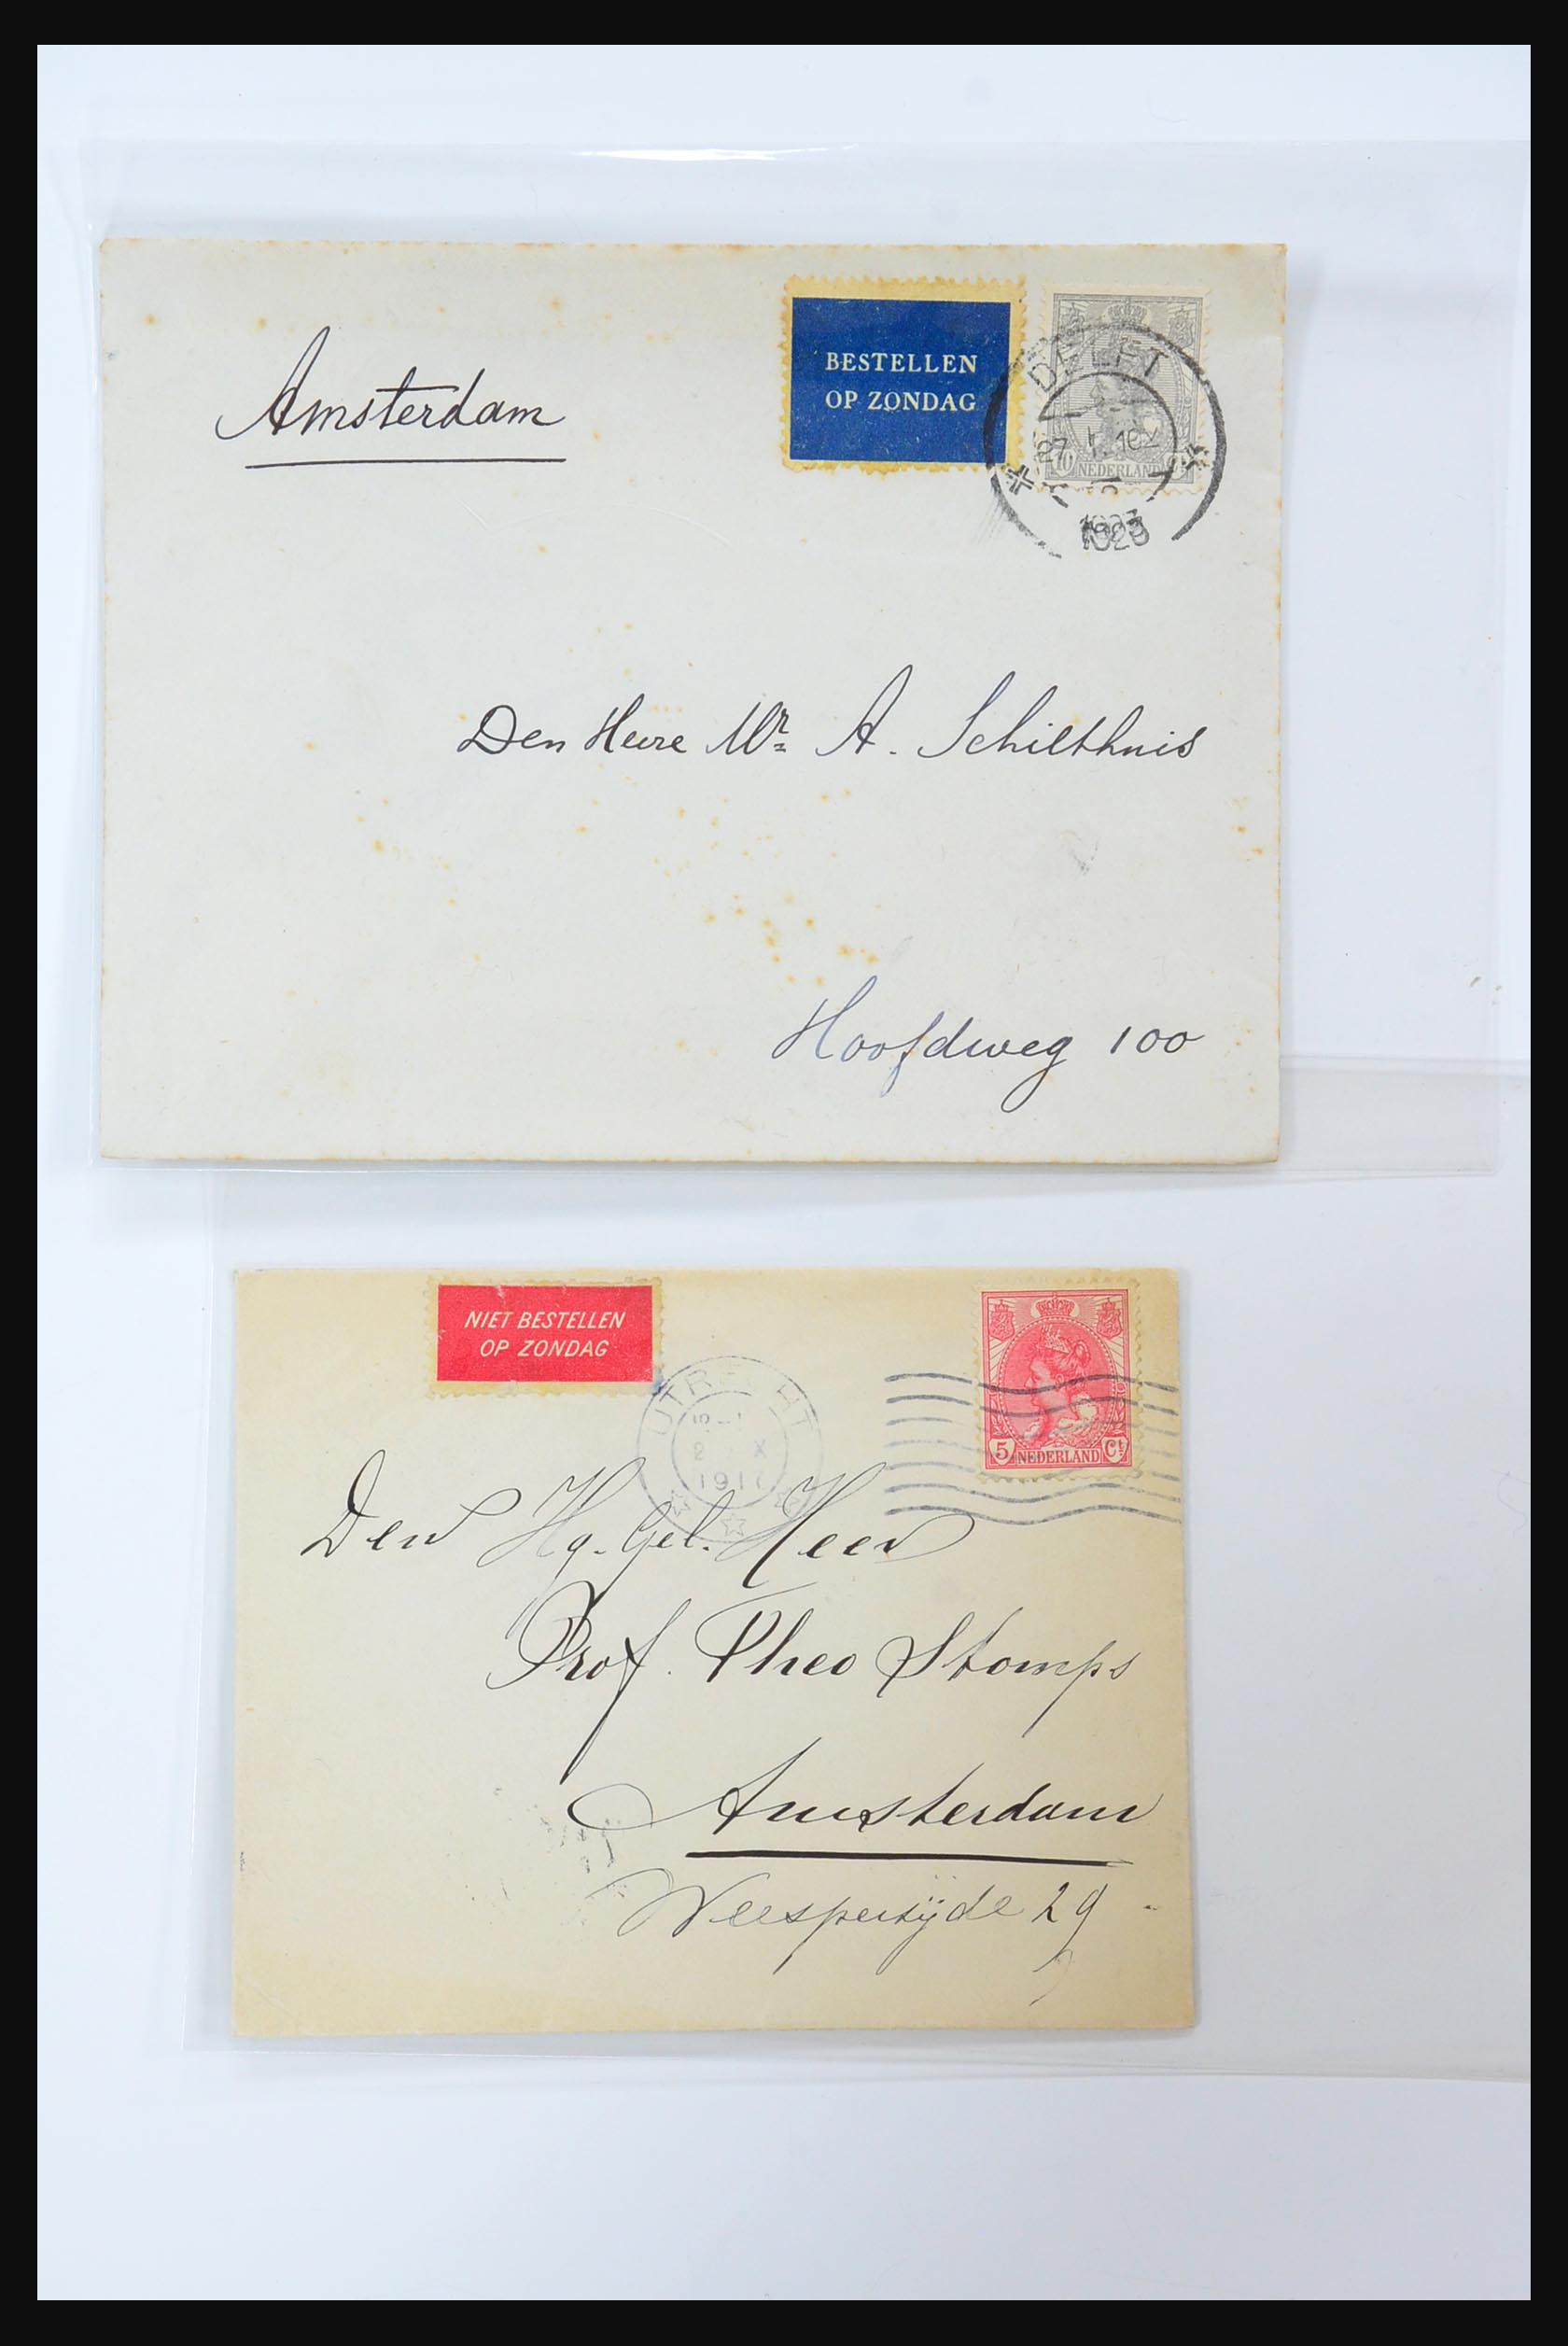 Amsterdam
BESTELLEN
OP ZONDAG
DELFT
1923
10
NEDERLAND
Den Heere Mr. A. Schilthuis
Hoofdweg 100
NIET BESTELLEN
OP ZONDAG
UTRECHT
5 NEDERLAND Ct
Den Hg. Gel. Heer
Prof. Theo Stomps
Amsterdam
Weesperzijde 29